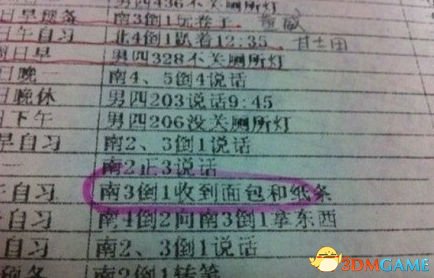 男四436不关厕所灯
日早预备 南3倒1玩卷子
日午自习 北4倒1趴着12:35
周日早 男四328不关厕所灯
日晚一 南4、5倒4说话
日晚休 男四203说话9:45
日下午 男四206没关厕所灯
早自习 南2、3倒1说话
南2正3说话
午自习 南3倒1收到面包和纸条
午自习 南4倒2向南3倒1拿东西
午自习 南2、3倒1说话
预备 南2倒1转笔
3DMGAME